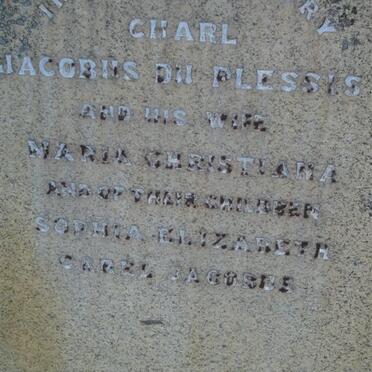 CHARL
JACOBUS DU PLESSIS
AND HIS WIFE
MARIA CHRISTIANA
AND OF THEIR CHILDREN
SOPHIA ELIZABETH
CAREL JACOBUS